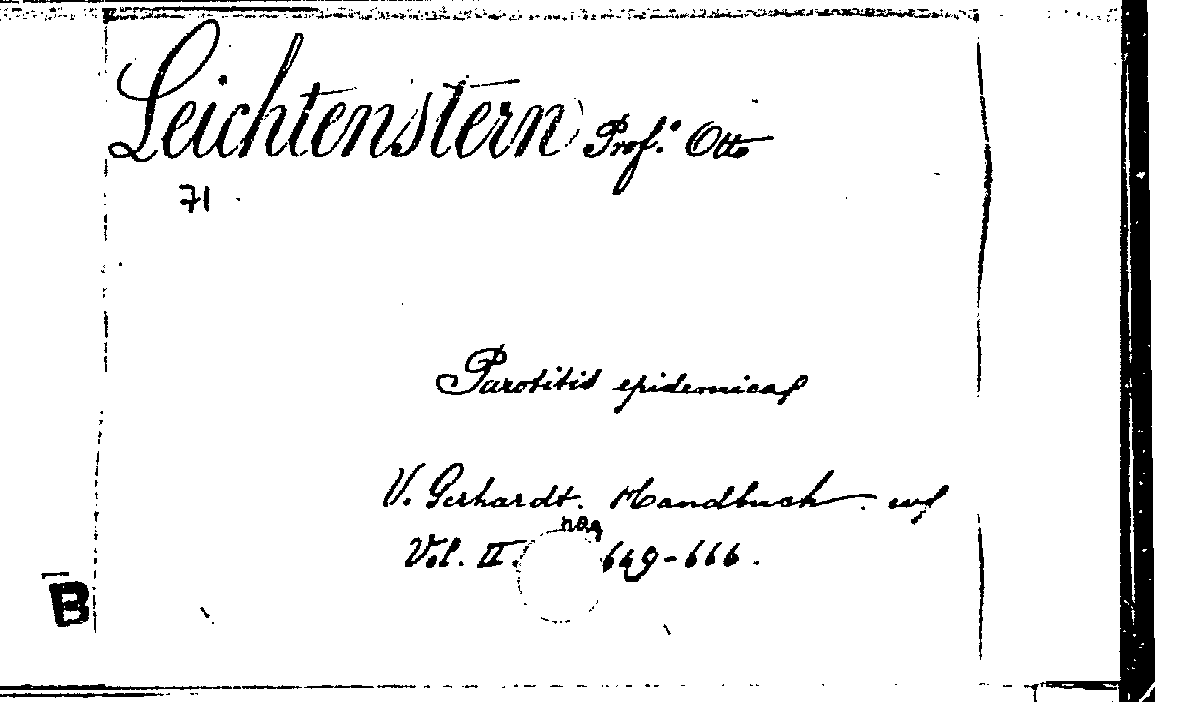 Leichtenstern Prof. Otto
71
Parotitis epidemica
V. Gerhardt. Handbuch.
pag
Vol. II. 649-666.
B